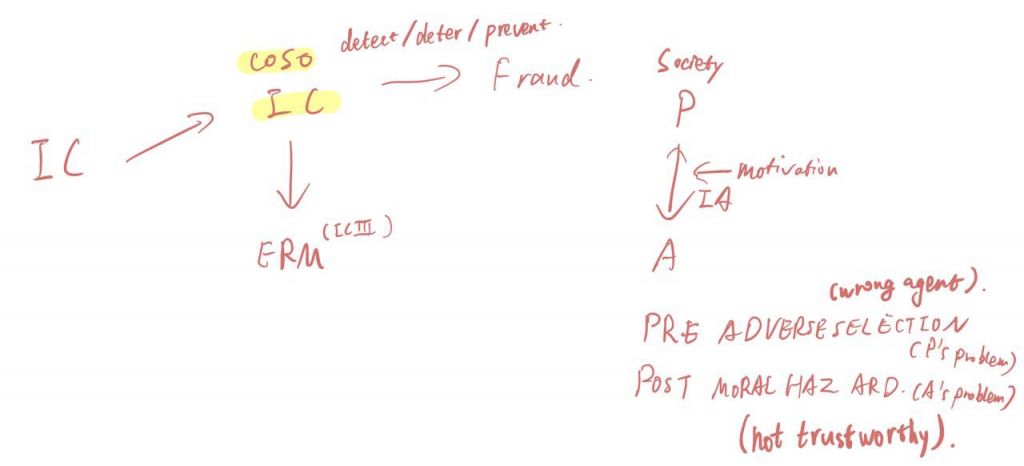 detect/deter/prevent.
COSO
IC
Fraud.
IC
ERM (IC III)
Society
P
motivation
IA
A
(wrong agent).
PRE ADVERSE SELECTION
(P's problem)
POST MORAL HAZARD. (A's problem)
(not trustworthy).